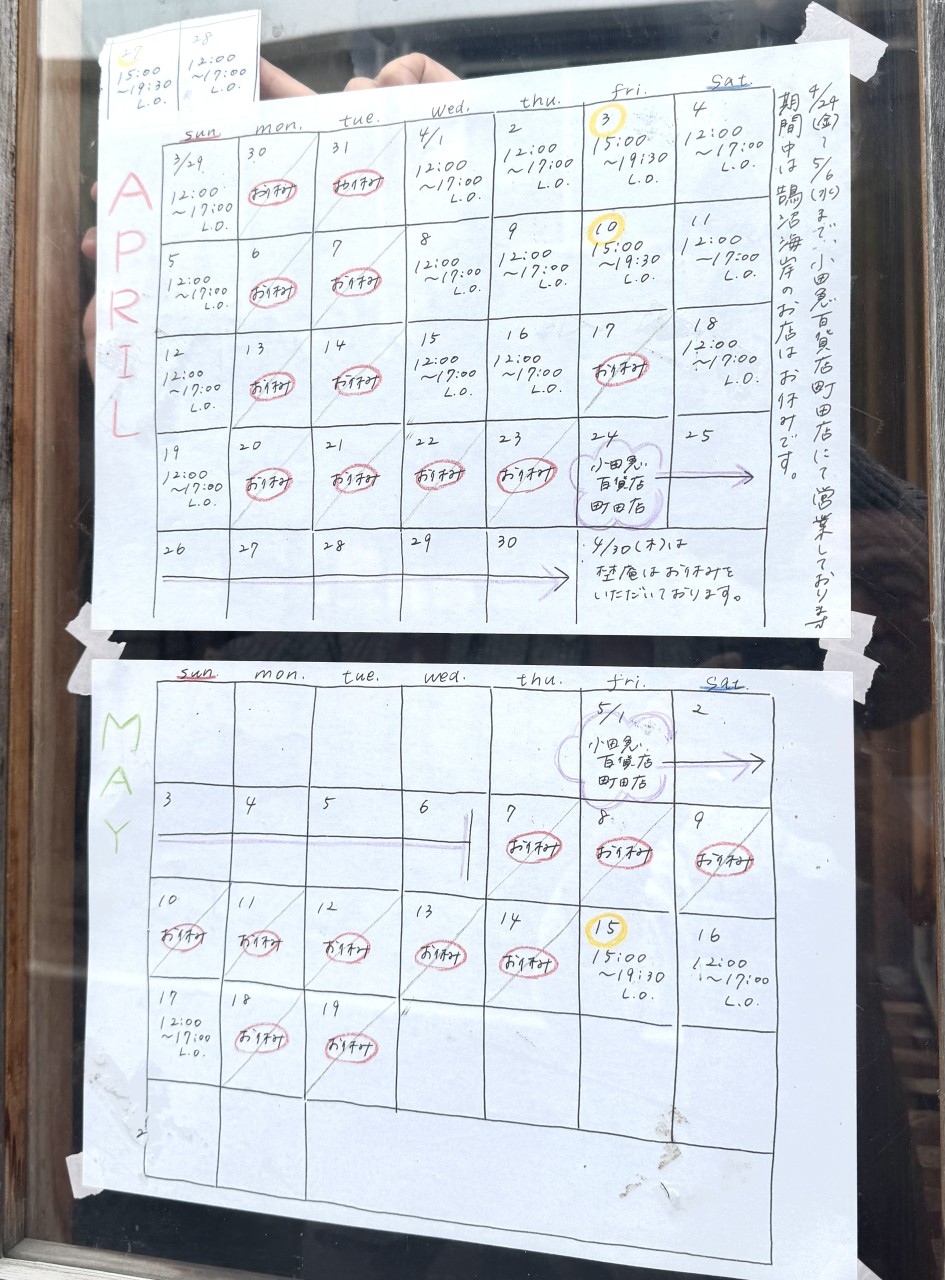 27
15:00
～19:30
L.O.
28
12:00
～17:00
L.O.
APRIL
sun. mon. tue. wed. thu. fri. sat.
3/29
12:00
～17:00
L.O.
30
お休み
31
お休み
4/1
12:00
～17:00
L.O.
2
12:00
～17:00
L.O.
3
15:00
～19:30
L.O.
4
12:00
～17:00
L.O.
5
12:00
～17:00
L.O.
6
お休み
7
お休み
8
12:00
～17:00
L.O.
9
12:00
～17:00
L.O.
10
15:00
～19:30
L.O.
11
12:00
～17:00
L.O.
12
12:00
～17:00
L.O.
13
お休み
14
お休み
15
12:00
～17:00
L.O.
16
12:00
～17:00
L.O.
17
お休み
18
12:00
～17:00
L.O.
19
12:00
～17:00
L.O.
20
お休み
21
お休み
22
お休み
23
お休み
24
小田急
百貨店
町田店
25
26
27
28
29
30
4/30(木)は
埜庵はお休みを
いただいております。
4/24(金)～5/6(水)まで、小田急百貨店町田店にて営業しております
期間中は鵠沼海岸のお店はお休みです。
MAY
sun. mon. tue. wed. thu. fri. sat.
5/1
小田急
百貨店
町田店
2
3
4
5
6
7
お休み
8
お休み
9
お休み
10
お休み
11
お休み
12
お休み
13
お休み
14
お休み
15
15:00
～19:30
L.O.
16
12:00
～17:00
L.O.
17
12:00
～17:00
L.O.
18
お休み
19
お休み